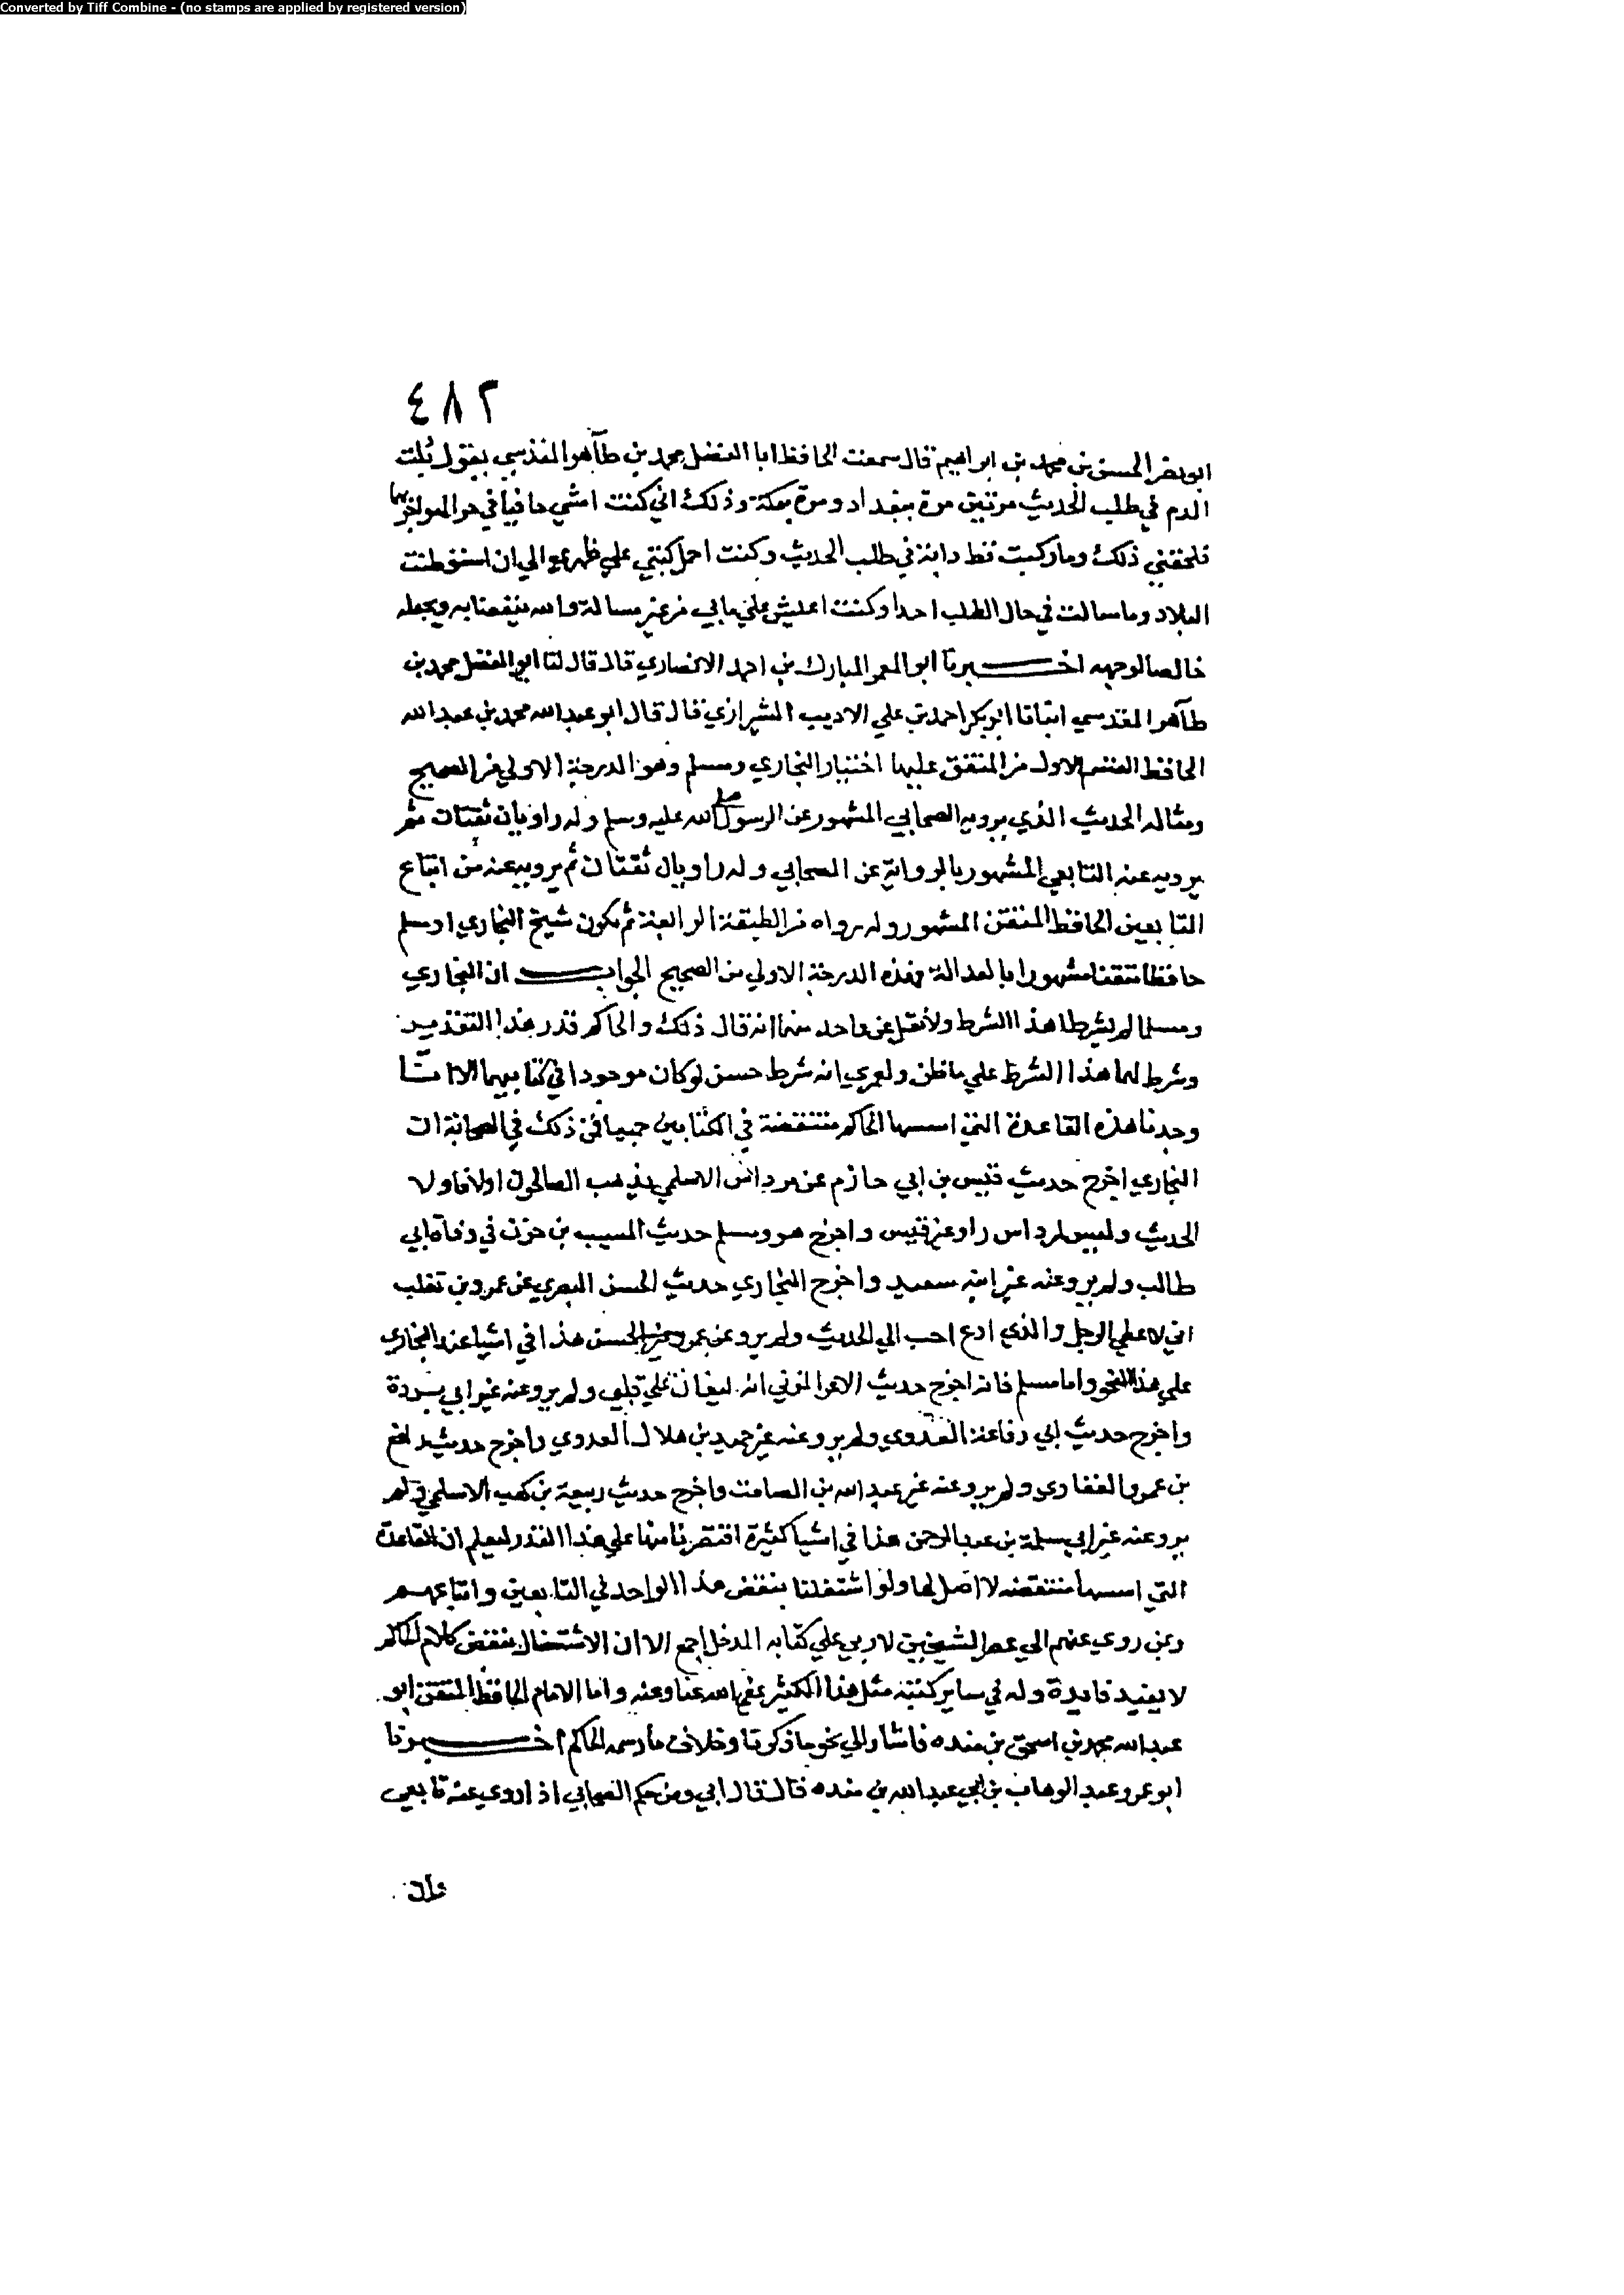 Converted by Tiff Combine - (no stamps are applied by registered version)
٤٨٢
ابو نصر الحسن بن محمد بن ابراهيم قال سمعت الحافظ ابا الفضل محمد بن طاهر المقدسي يقول بُلت
الدم في طلب الحديث مرتين مرة ببغداد ومرة بمكة وذلك اني كنت امشي حافيا في حر الهواجر بها
فلحقني ذلك وما ركبت قط دابة في طلب الحديث وكنت احمل كتبي علي ظهري الي ان استوطنت
البلاد وما سالت في حال الطلب احدا وكنت اعيش علي ما ياتي من غير مسالة والله ينفعنا به ويجعله
خالصا لوجهه اخبرنا ابو المعمر المبارك بن احمد الانصاري قال قال لنا ابو الفضل محمد بن
طاهر المقدسي انبانا ابو بكر احمد بن علي الاديب الشيرازي قال قال ابو عبد الله محمد بن عبد الله
الحافظ القسم الاول من المتفق عليها اختيار البخاري ومسلم وهو الدرجة الاولي من الصحيح
ومثاله الحديث الذي يرويه الصحابي المشهور عن الرسول صلى الله عليه وسلم وله راويان ثقتان ثم
يرويه عنه التابعي المشهور بالرواية عن الصحابي وله راويان ثقتان ثم يرويه عنه من اتباع
التابعين الحافظ المتقن المشهور وله رواه من الطبقة الرابعة ثم يكون شيخ البخاري او مسلم
حافظا متقنا مشهورا بالعدالة فهذه الدرجة الاولي من الصحيح الجواب ان البخاري
ومسلما لم يشرطا هذا الشرط ولا نقل عن واحد منهما انه قال ذلك والحاكم قدر هذا التقدير
وشرط لهما هذا الشرط علي ما ظن ولعمري انه شرط حسن لو كان موجودا في كتابيهما الا انا
وجدنا هذه القاعدة التي اسسها الحاكم منتقضة في الكتابين جميعا فمن ذلك في الصحابة ان
البخاري اخرج حديث قيس بن ابي حازم عن مرداس الاسلمي يذهب الصالحون اولا فاولا
الحديث وليس لمرداس راو غير قيس واخرج هو ومسلم حديث المسيب بن حزن في وفاة ابي
طالب ولم يرو عنه غير ابنه سعيد واخرج البخاري حديث الحسن البصري عن عمرو بن تغلب
اني لاعطي الرجل والذي ادع احب الي الحديث ولم يرو عن عمرو غير الحسن هذا في اشيا عند البخاري
علي هذا النحو واما مسلم فانه اخرج حديث الاغر المزني انه ليغان علي قلبي ولم يرو عنه غير ابي بردة
واخرج حديث ابي رفاعة العدوي ولم يرو عنه غير حميد بن هلال العدوي واخرج حديث رافع
بن عمرو الغفاري ولم يرو عنه غير عبد الله بن الصامت واخرج حديث ربيعة بن كعب الاسلمي ولم
يرو عنه غير ابي سلمة بن عبد الرحمن هذا في اشيا كثيرة اقتصرنا منها علي هذا القدر ليعلم ان القاعدة
التي اسسها منتقضه لا اصل لها ولو اشتغلنا بنقض هذا الواحد في التابعين واتباعهم
وعن روي عنهم الي عصر الشيخين لاربي علي كتابه المدخل اجمع الا ان الاشتغال بنقض كلام الحاكم
لا يفيد فايدة وله في ساير كتبه مثل هذا الكثير عفا الله عنا وعنه واما الامام الحافظ المتقن ابو
عبد الله محمد بن اسحق بن منده فاشار الي نحو ما ذكرنا وخلاف ما رسمه الحاكم اخبرنا
ابو عمرو عبد الوهاب بن ابي عبد الله بن منده قال قال ابي ومن حكم الصحابي اذا روي عنه تابعي